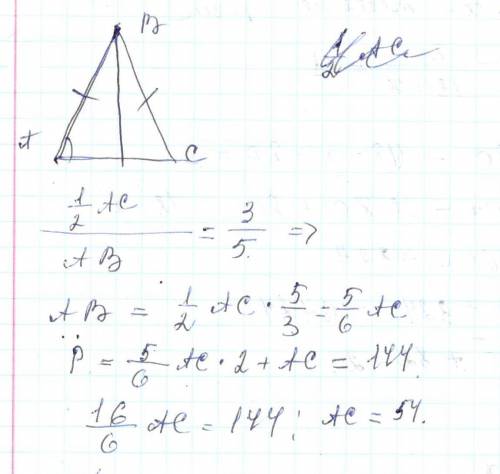 B
A
C
1/2 AC / AB = 3/5 =>
AB = 1/2 AC · 5/3 = 5/6 AC
P = 5/6 AC · 2 + AC = 144.
16/6 AC = 144; AC = 54.